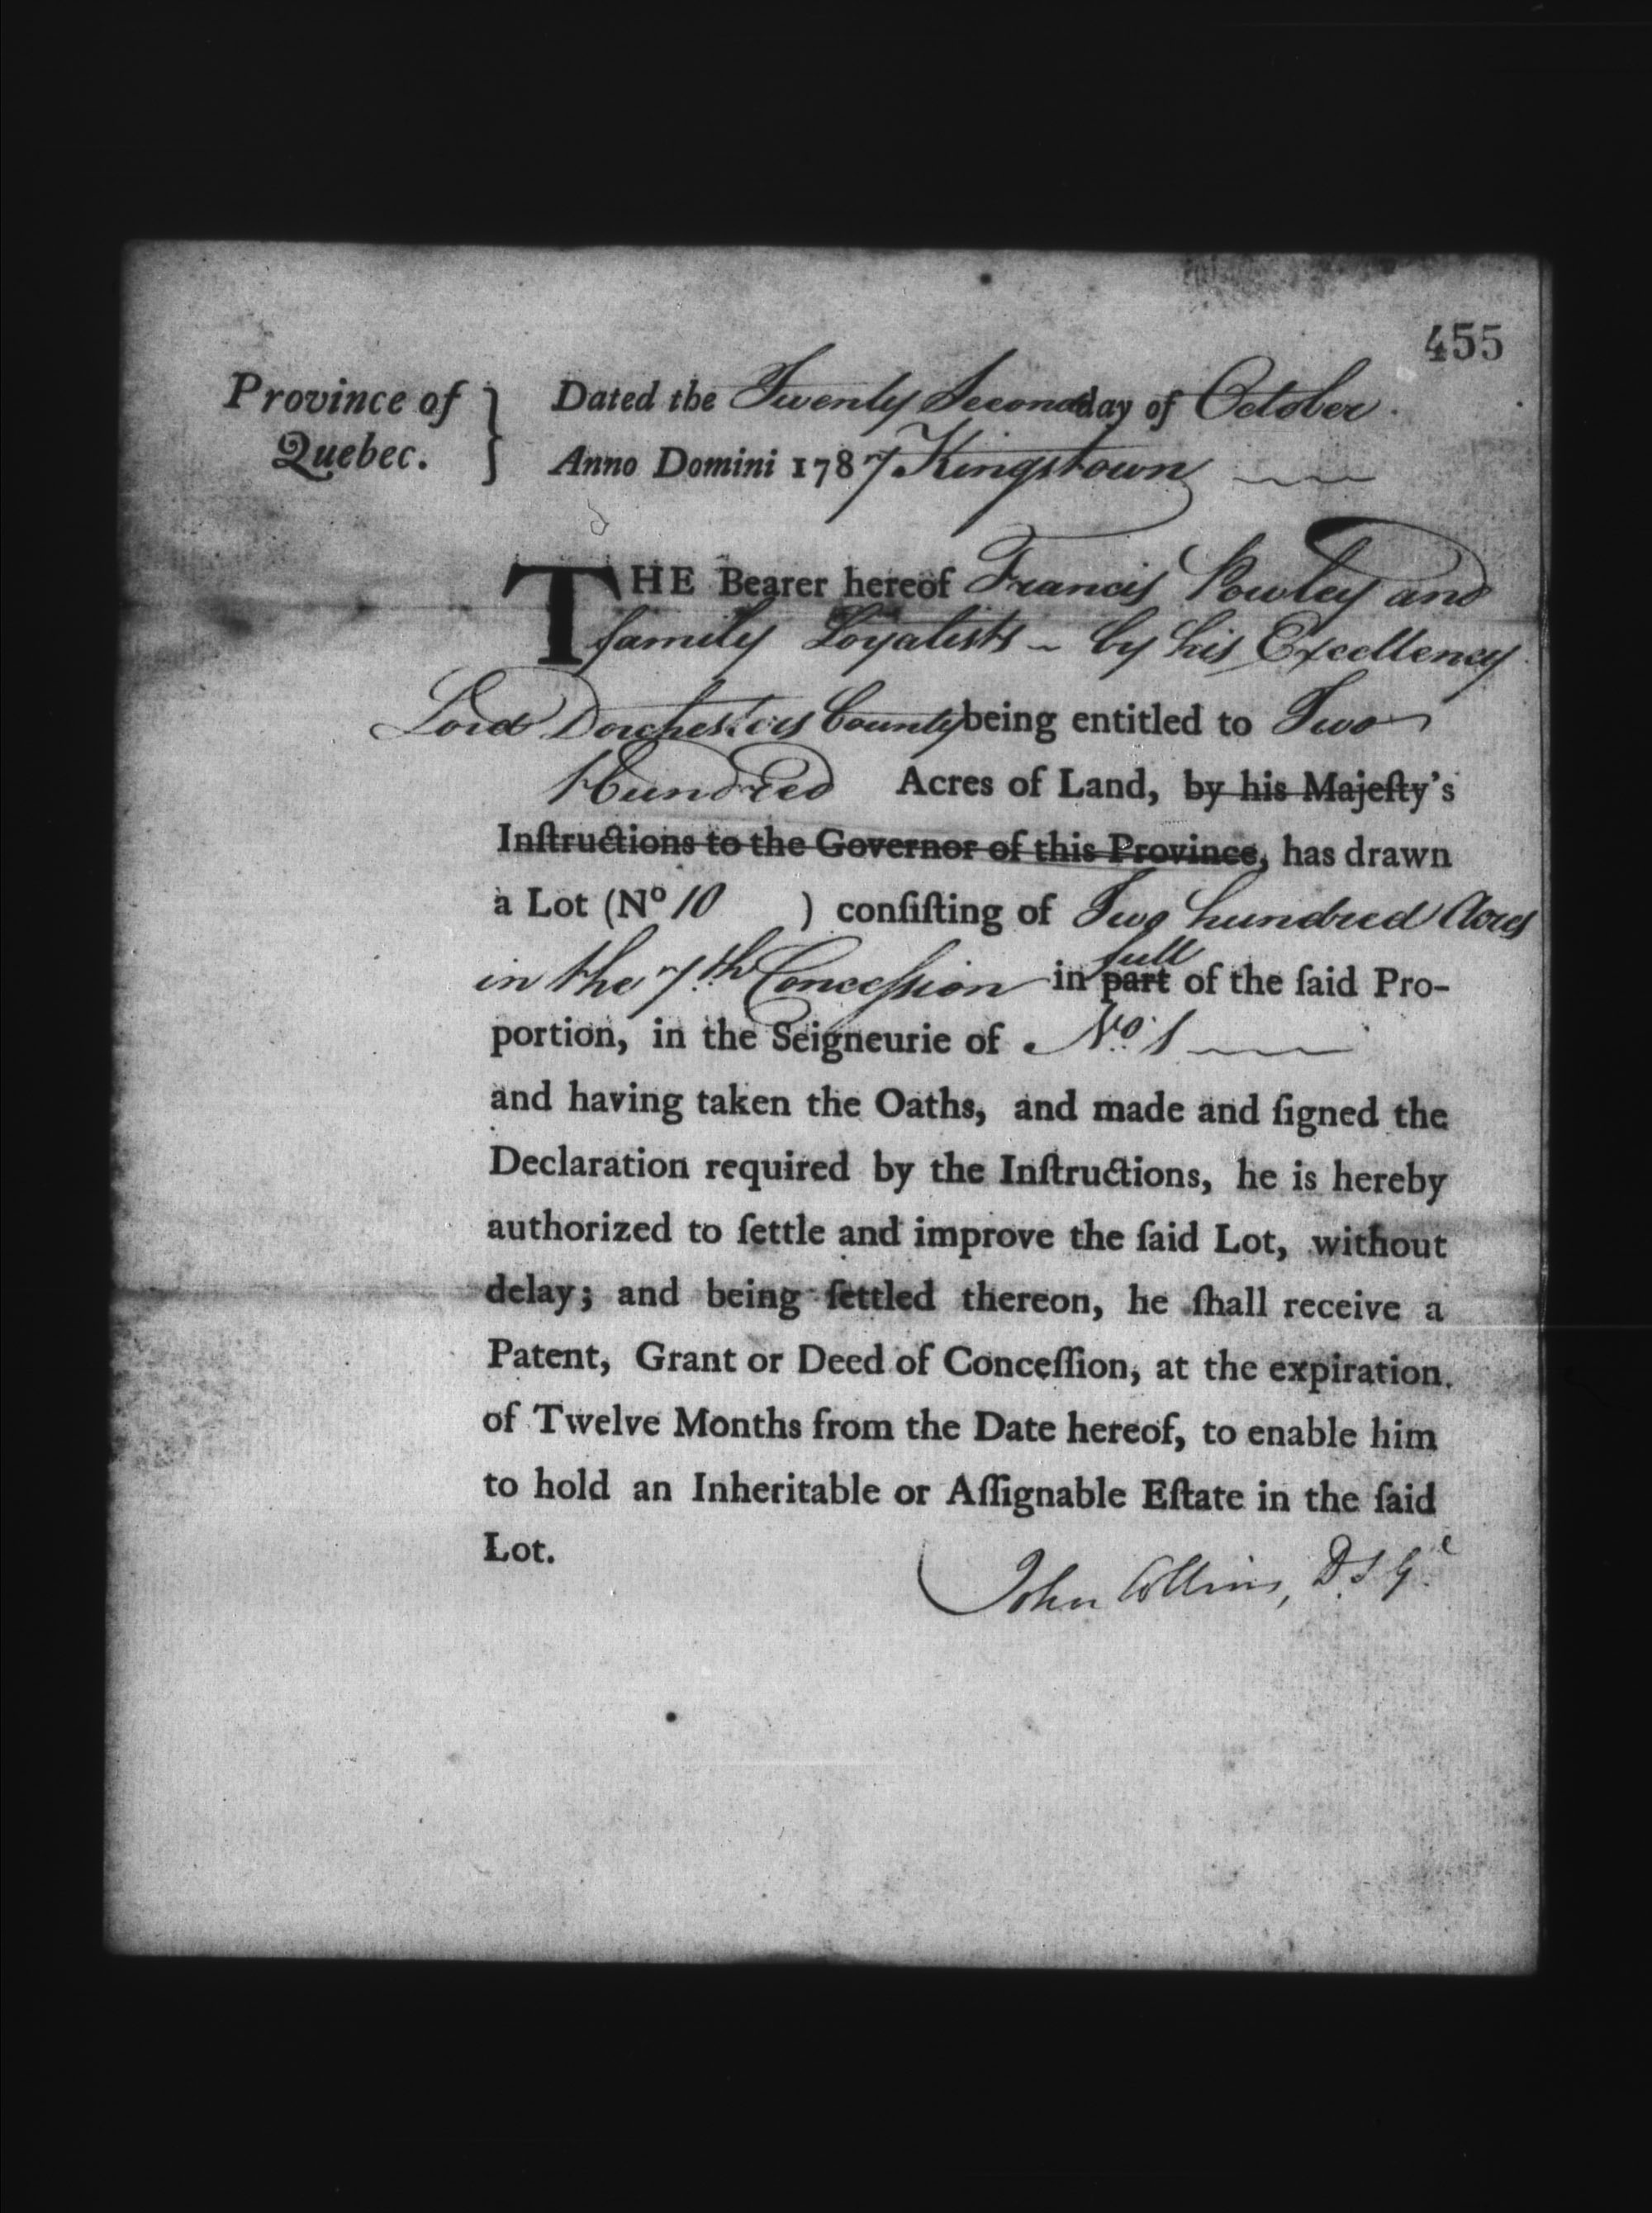 455
Province of Quebec. } Dated the Twenty Second day of October.
Anno Domini 1787 Kingstown
THE Bearer hereof Francis Powley and
family Loyalists ~ by his Excellency
Lord Dorchesters County being entitled to Two
Hundred Acres of Land, by his Majeſty's
Inſtructions to the Governor of this Province, has drawn
a Lot (No 10 ) conſiſting of Two hundred Acres
in the 7.th Conceſsion in part full of the ſaid Pro-
portion, in the Seigneurie of No. 1
and having taken the Oaths, and made and ſigned the
Declaration required by the Inſtructions, he is hereby
authorized to ſettle and improve the ſaid Lot, without
delay; and being ſettled thereon, he ſhall receive a
Patent, Grant or Deed of Conceſſion, at the expiration
of Twelve Months from the Date hereof, to enable him
to hold an Inheritable or Aſſignable Eſtate in the ſaid
Lot.
John Collins, D.S.G.l